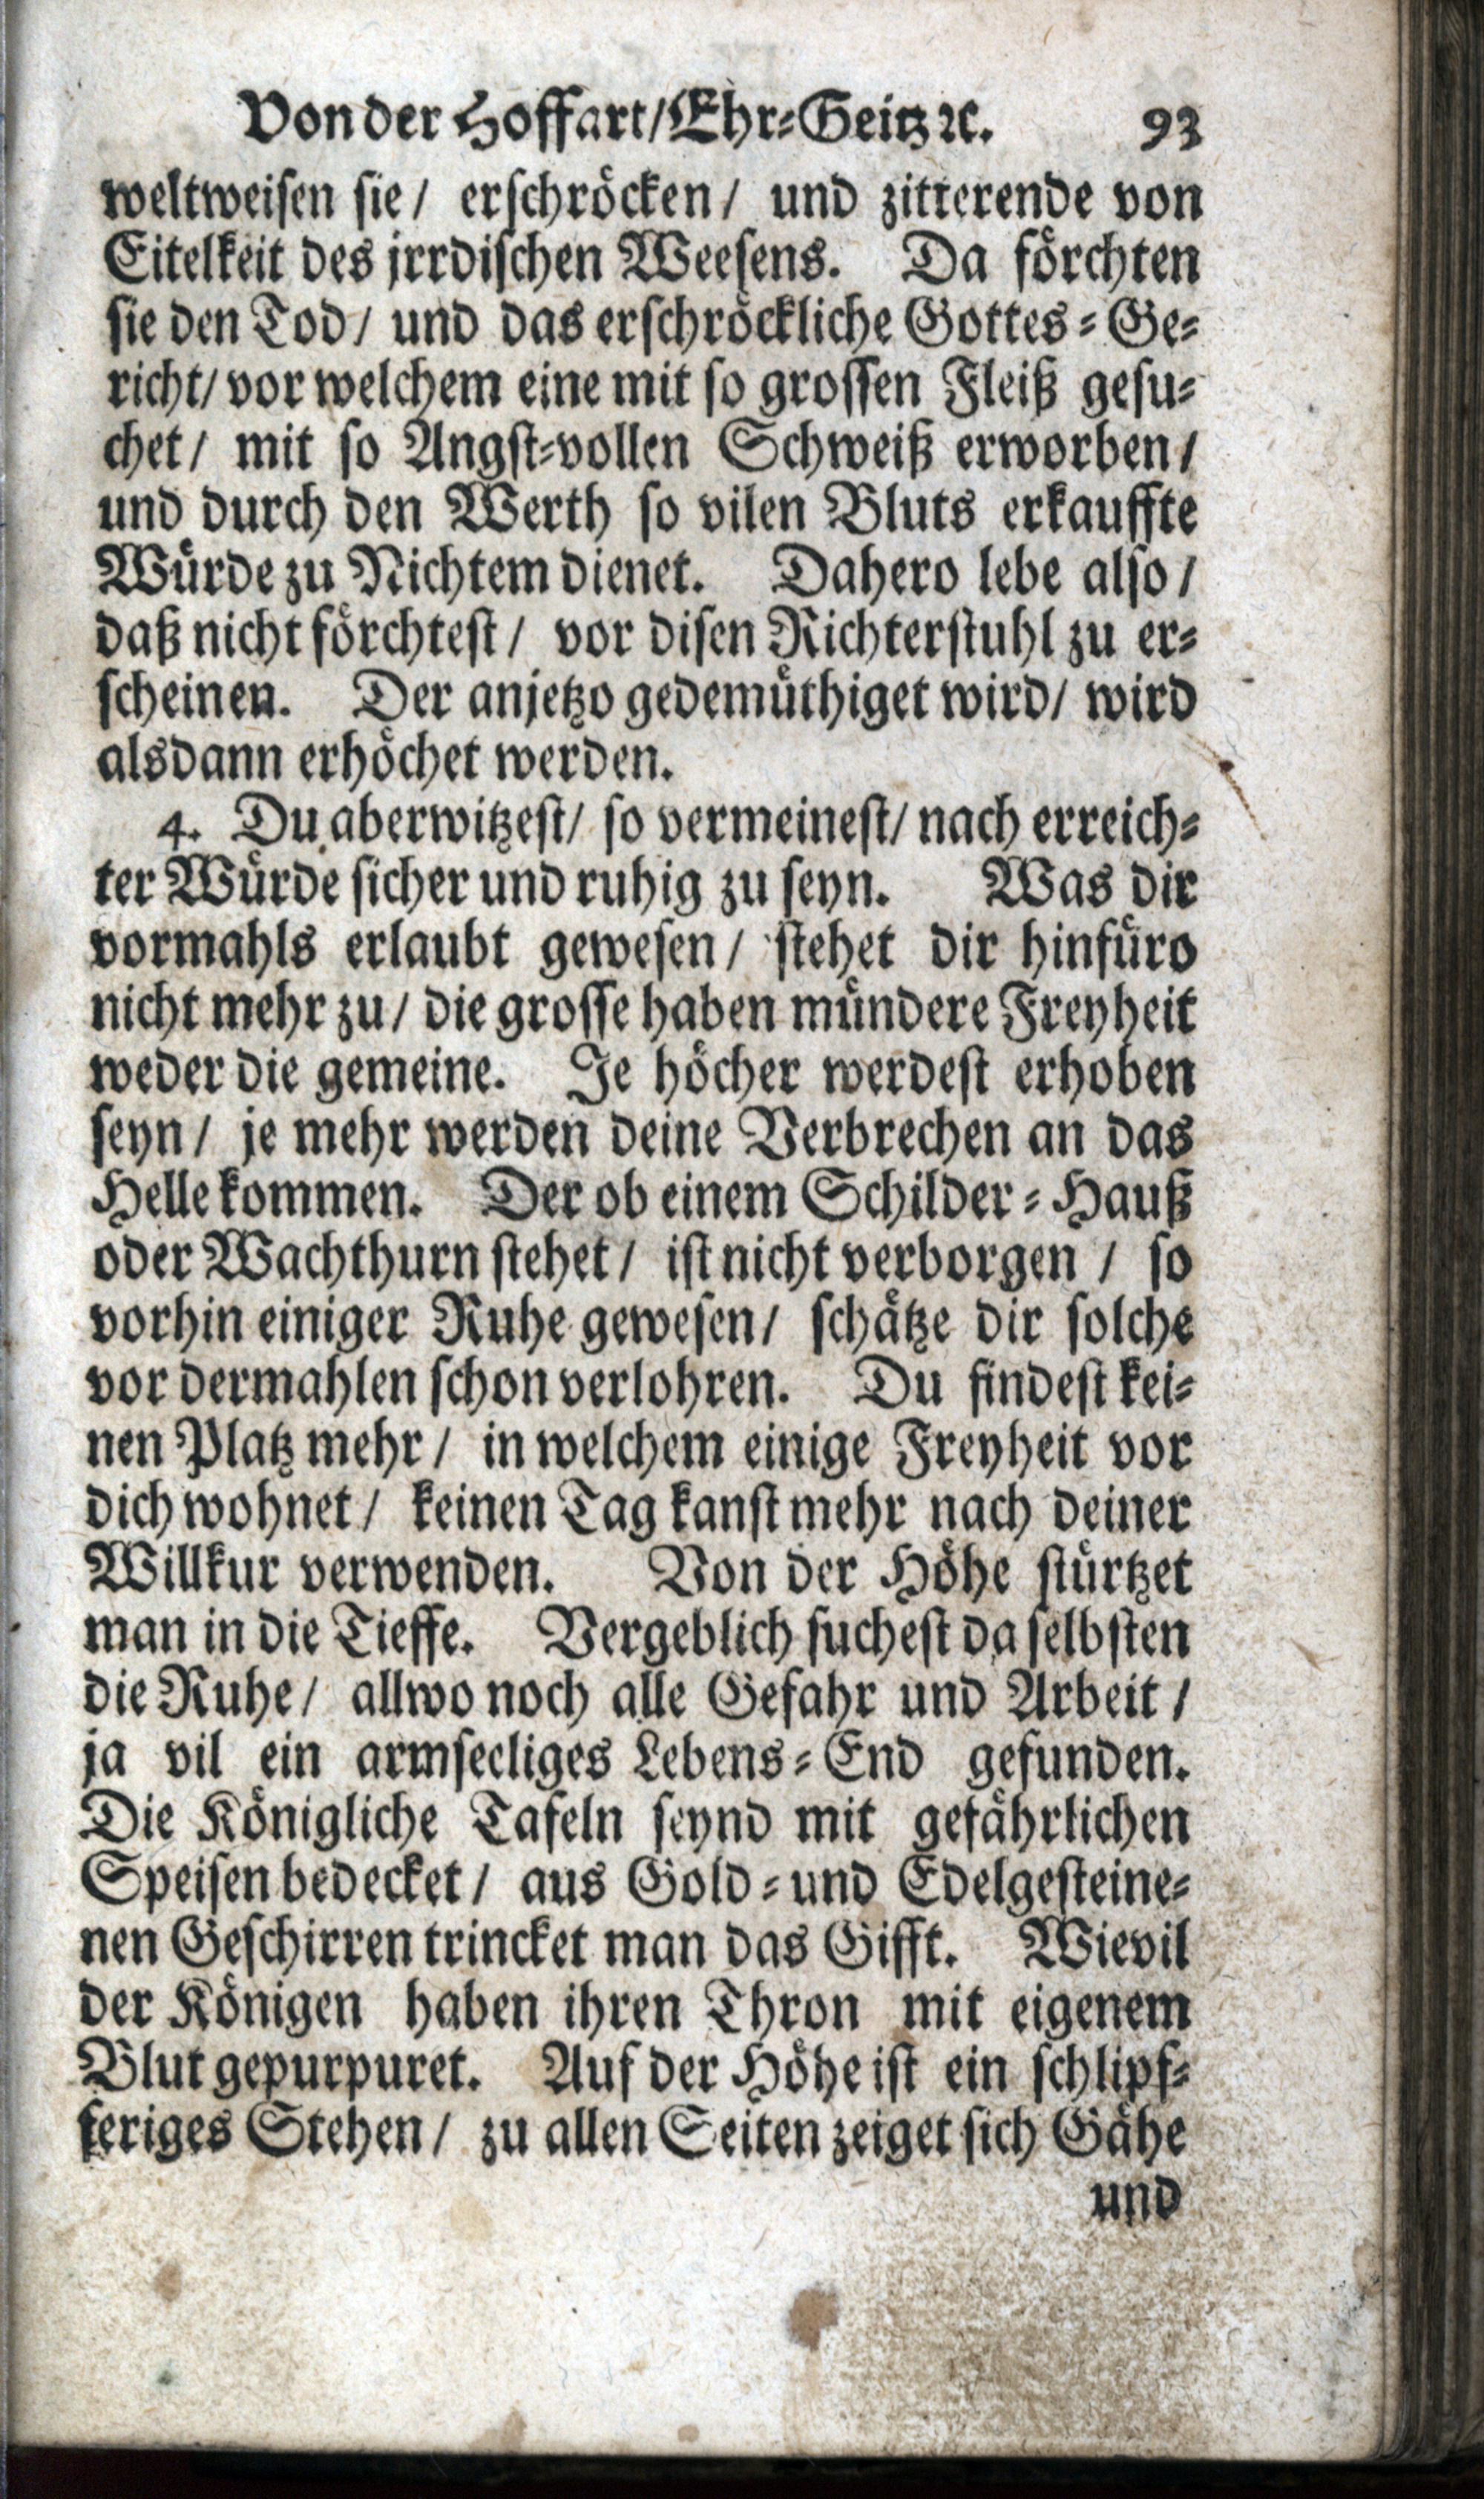 Von der Hoffart/Ehr-Geitz ꝛc. 93
weltweisen sie/ erschröcken/ und zitterende von
Eitelkeit des jrrdischen Weesens. Da förchten
sie den Tod/ und das erschröckliche Gottes-Ge-
richt/ vor welchem eine mit so grossen Fleiß gesu-
chet/ mit so Angst-vollen Schweiß erworben/
und durch den Werth so vilen Bluts erkauffte
Würde zu Nichtem dienet. Dahero lebe also/
daß nicht förchtest/ vor disen Richterstuhl zu er-
scheinen. Der anjetzo gedemüthiget wird/ wird
alsdann erhöchet werden.
4. Du aberwitzest/ so vermeinest/ nach erreich-
ter Würde sicher und ruhig zu seyn. Was dir
vormahls erlaubt gewesen/ stehet dir hinfüro
nicht mehr zu/ die grosse haben mündere Freyheit
weder die gemeine. Je höcher werdest erhoben
seyn/ je mehr werden deine Verbrechen an das
Helle kommen. Der ob einem Schilder-Hauß
oder Wachthurn stehet/ ist nicht verborgen/ so
vorhin einiger Ruhe gewesen/ schätze dir solche
vor dermahlen schon verlohren. Du findest kei-
nen Platz mehr/ in welchem einige Freyheit vor
dich wohnet/ keinen Tag kanst mehr nach deiner
Willkur verwenden. Von der Höhe stürtzet
man in die Tieffe. Vergeblich suchest da selbsten
die Ruhe/ allwo noch alle Gefahr und Arbeit/
ja vil ein armseeliges Lebens-End gefunden.
Die Königliche Tafeln seynd mit gefährlichen
Speisen bedecket/ aus Gold-und Edelgesteine-
nen Geschirren trincket man das Gifft. Wievil
der Königen haben ihren Thron mit eigenem
Blut gepurpuret. Auf der Höhe ist ein schlipf-
feriges Stehen/ zu allen Seiten zeiget sich Gähe
und